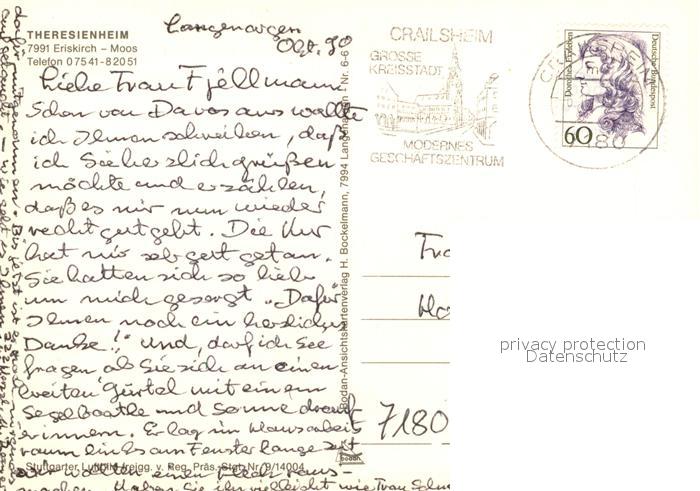 THERESIENHEIM
7991 Eriskirch – Moos
Telefon 0 75 41 - 8 20 51
Langenargen
Okt. 90
Liebe Frau Fjellmann
Schon von Davos aus wollte
ich Ihnen schreiben, daß
ich Sie herzlich grüßen
möchte und erzählen,
daß es mir nun wieder
recht gut geht. Die Kur
hat mir sehr gut getan.
Sie hatten sich so lieb
um mich gesorgt. "Dafür
Ihnen noch ein herzliches
Danke!" Und, darf ich Sie
fragen ob Sie sich an einen
breiten Gürtel mit einem
Segelboot und Sonne drauf
erinnern. Er lag im Hausarbeit
raum ein bis am Fenster lange Zeit
wir wollten einen Fleck raus-
machen. Haben Sie ihn vielleicht wie Frau
Stuttgarter Luftbild freigg. v. Reg. Präs. Stgt. Nr. 9/14004
Bodan-Ansichtskartenverlag H. Bockelmann, 7994 Langenargen - Nr. 6-6
bodan
CRAILSHEIM
GROSSE
KREISSTADT
MODERNES
GESCHÄFTSZENTRUM
CRAILSHEIM
Dorothea Erxleben
Deutsche Bundespost
60
7180
privacy protection
Datenschutz